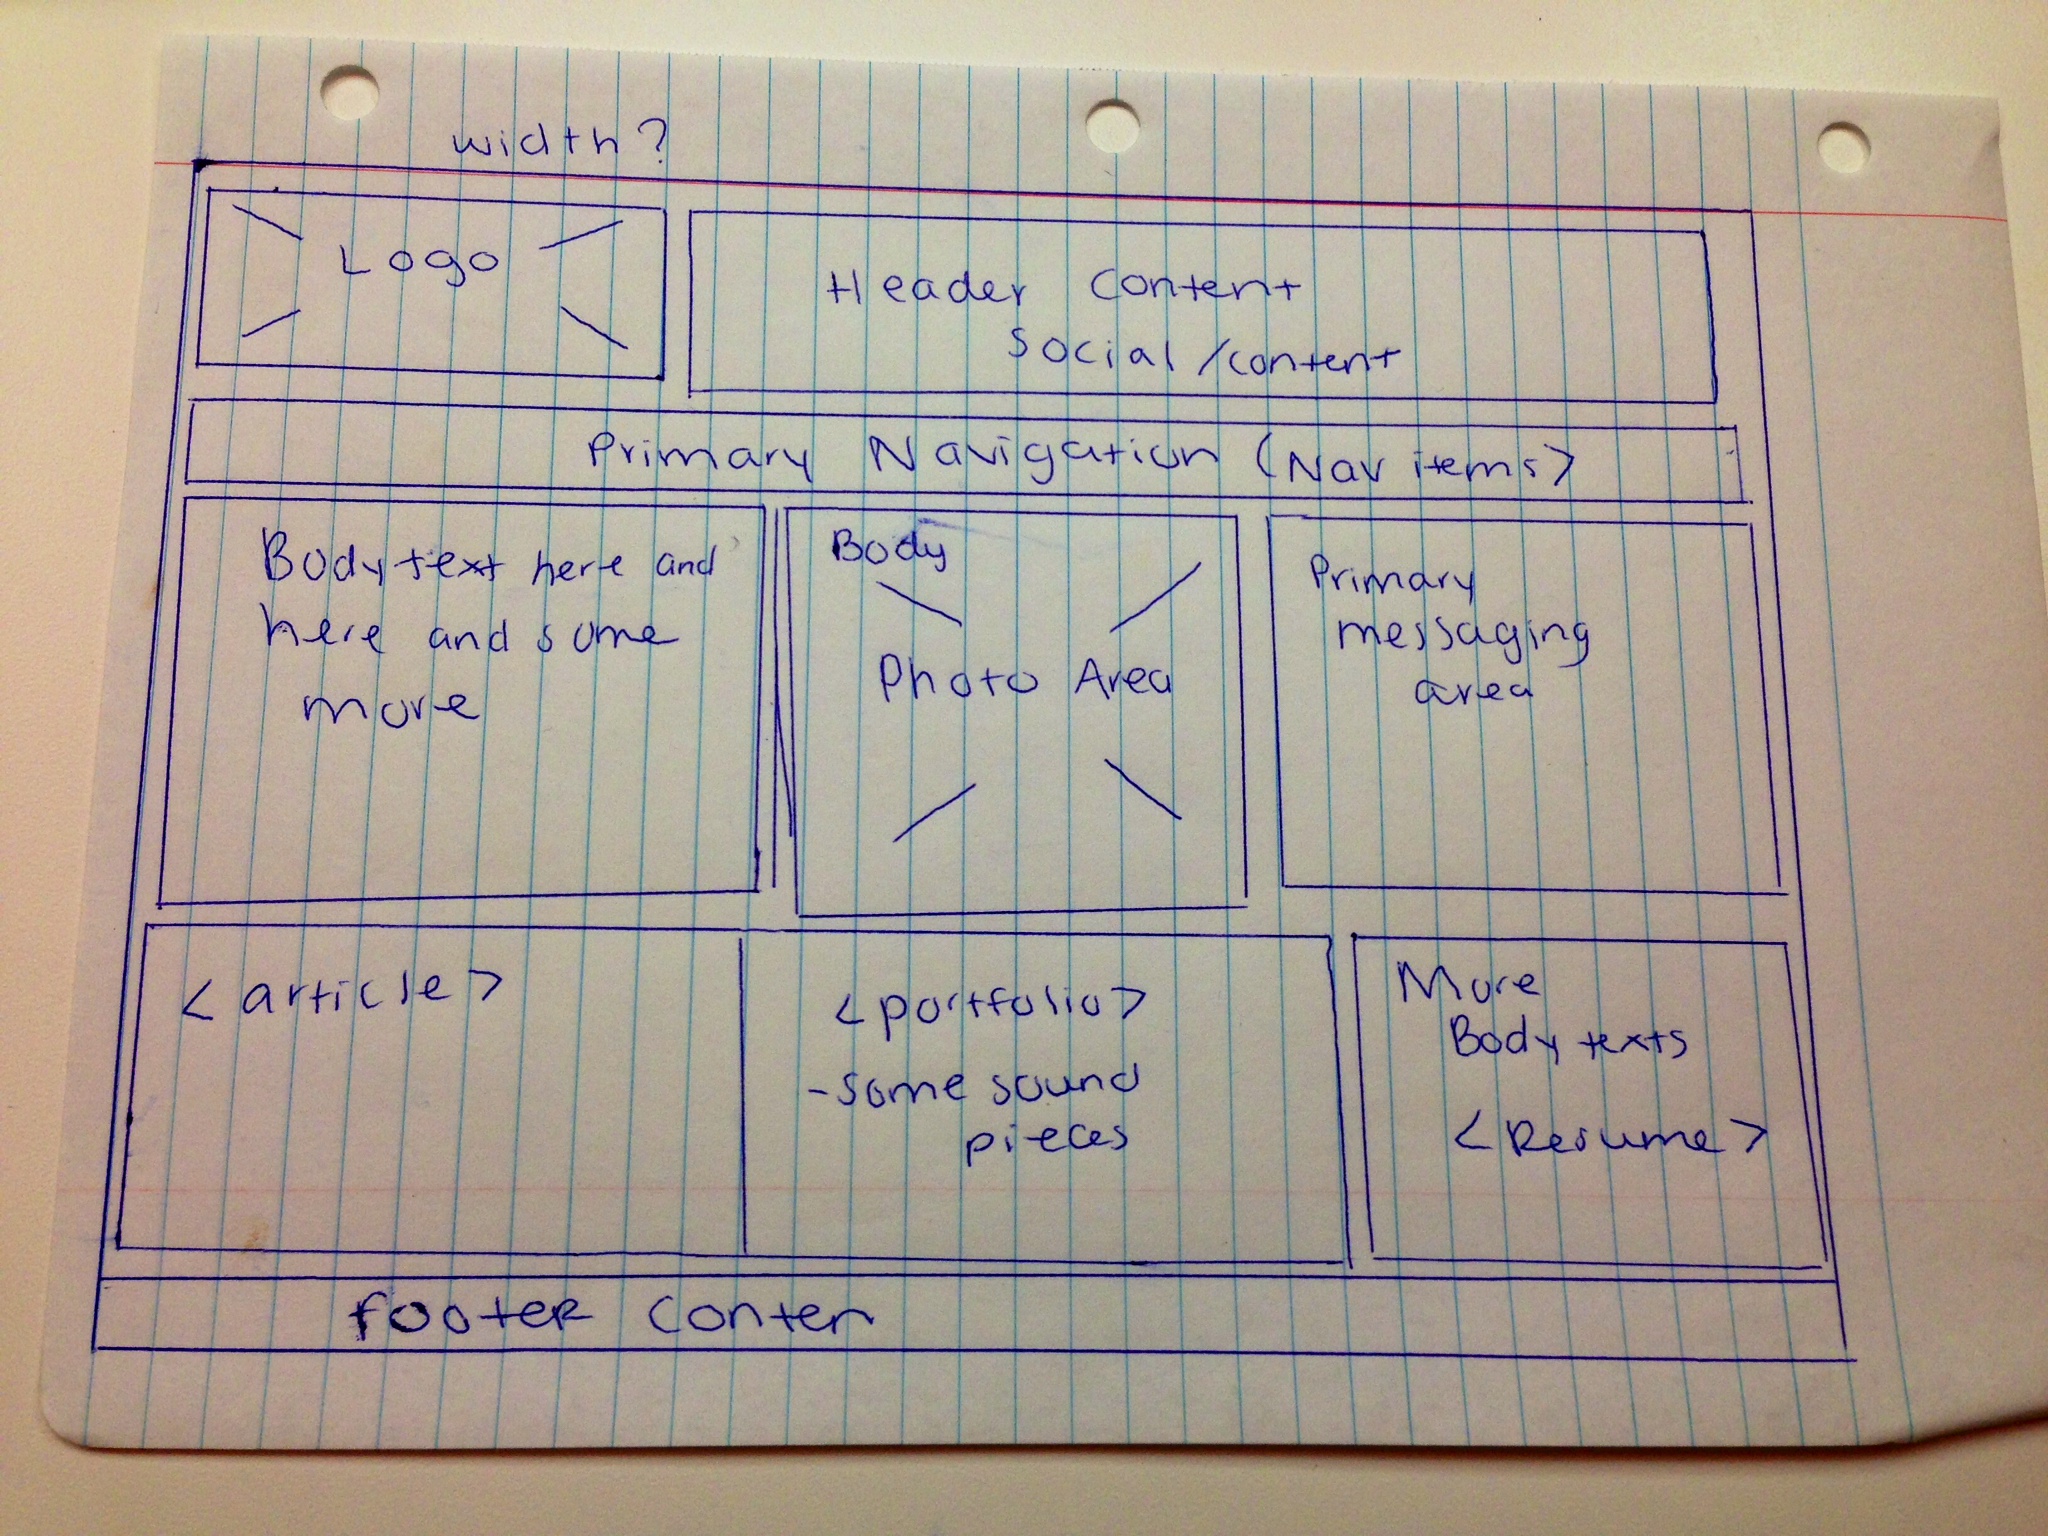 width?
Logo
Header Content
Social/content
Primary Navigation (Nav items>
Body text here and
here and some
more
Body
Photo Area
Primary
messaging
area
<article>
<portfolio>
-some sound
pieces
More
Body texts
<Resume>
footer Conten